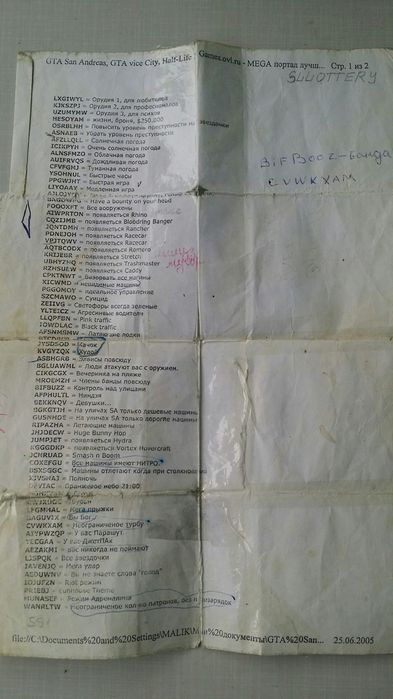 GTA San Andreas, GTA vice City, Half-Life Games.ovl.ru - MEGA портал лучш... Стр. 1 из 2
SLLOTTERY
LXGIWYL = Орудия 1, для любителя
KJKSZPJ = Орудия 2, для профессионалов
UZUMYMW = Орудия 3, для психов
HESOYAM = жизни, броня, $250,000
OSRBLHH = Повысить уровень преступности на звездочки
ASNAEB = Убрать уровень преступности
AFZLLQLL = Солнечная погода
ICIKPYH = Очень солнечная погода
ALNSFMZO = Облачная погода
AUIFRVQS = Дождливая погода
CFVFGMJ = Туманная погода
YSOHNUL = Быстрые часы
PPGWJHT = Быстрая игра
LIYOAAY = Медленная игра
BIFBOOZ - банда
CVWKXAM
= Have a bounty on your head
FOOOXFT = Все вооружены
AIWPRTON = появляеться Rhino
CQZIJMB = появляеться Bloodring Banger
JQNTDMH = появляеться Rancher
PDNEJOH = появляеться Racecar
VPJTQWV = появляеться Racecar
AQTBCODX = появляеться Romero
KRIJEBR = появляеться Stretch
UBHYZHQ = появляеться Trashmaster
RZHSUEW = появляеться Caddy
CPKTNWT = Взорвать все машины
XICWMD = невидимые машины
PGGOMOY = идеальное управление
SZCMAWO = Суицид
ZEIIVG = Светофоры всегда зеленые
YLTEICZ = Агресивные водители
LLQPFBN = Pink traffic
IOWDLAC = Black traffic
AFSNMSMW = Летающие лодки
BTCDBCB =
JYSDSOD = Качок
KVGYZQK = Худой
ASBHGRB = Элвисы повсюду
BGLUAWML = Люди атакуют вас с оружием.
CIKGCGX = Вечеринка на пляже
MROEMZH = Члены банды повсюду
BIFBUZZ = Контроль над улицами
AFPHULTL = Ниндзя
BEKKNQV = Девушки...
BGKGTJH = На улицах SA только дешевые машины
GUSNHDE = На улицах SA только дорогие машины
RIPAZHA = Летающие машины
JHJOECW = Huge Bunny Hop
JUMPJET = появляеться Hydra
KGGGDKP = появляеться Vortex Hovercraft
JCNRUAD = Smash n Boom
COXEFGU = Все машины имеют НИТРО
BSXSGGC = Машины отлетают когда при столкновении
XJVSNAJ = Полночь
OFVIAC = Оранжевое небо 21:00
LFGMHAL = Мега прыжки
BAGUVIX = Вы Бог
CVWKXAM = Неограниченое турбо
AIYPWZQP = У вас Парашут
YECGAA = У вас ДжетПАк
AEZAKMI = Вас никогда не поймают
LJSPQK = Все звездочки
IAVENJQ = Мега удар
AEDUWNV = Вы не знаете слова "голод"
IOJUFZN = Riot режим
PRIEBJ = Funhouse Theme
MUNASEF = Режим Адреналина
WANRLTW = Неограниченое кол-во патронов, без перезарядок
file://C:\Documents%20and%20Settings\MALIK\Мои%20документы\GTA%20San... 25.06.2005